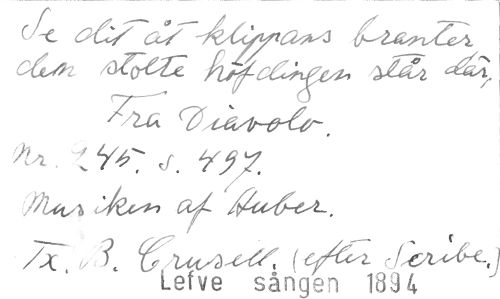 Se dit åt klippans branter,
den stolte höfdingen står där,
Fra Diavolo.
Nr. 245. s. 497.
Musiken af Auber.
Tx. B. Crusell. (efter Scribe.)
Lefve sången 1894